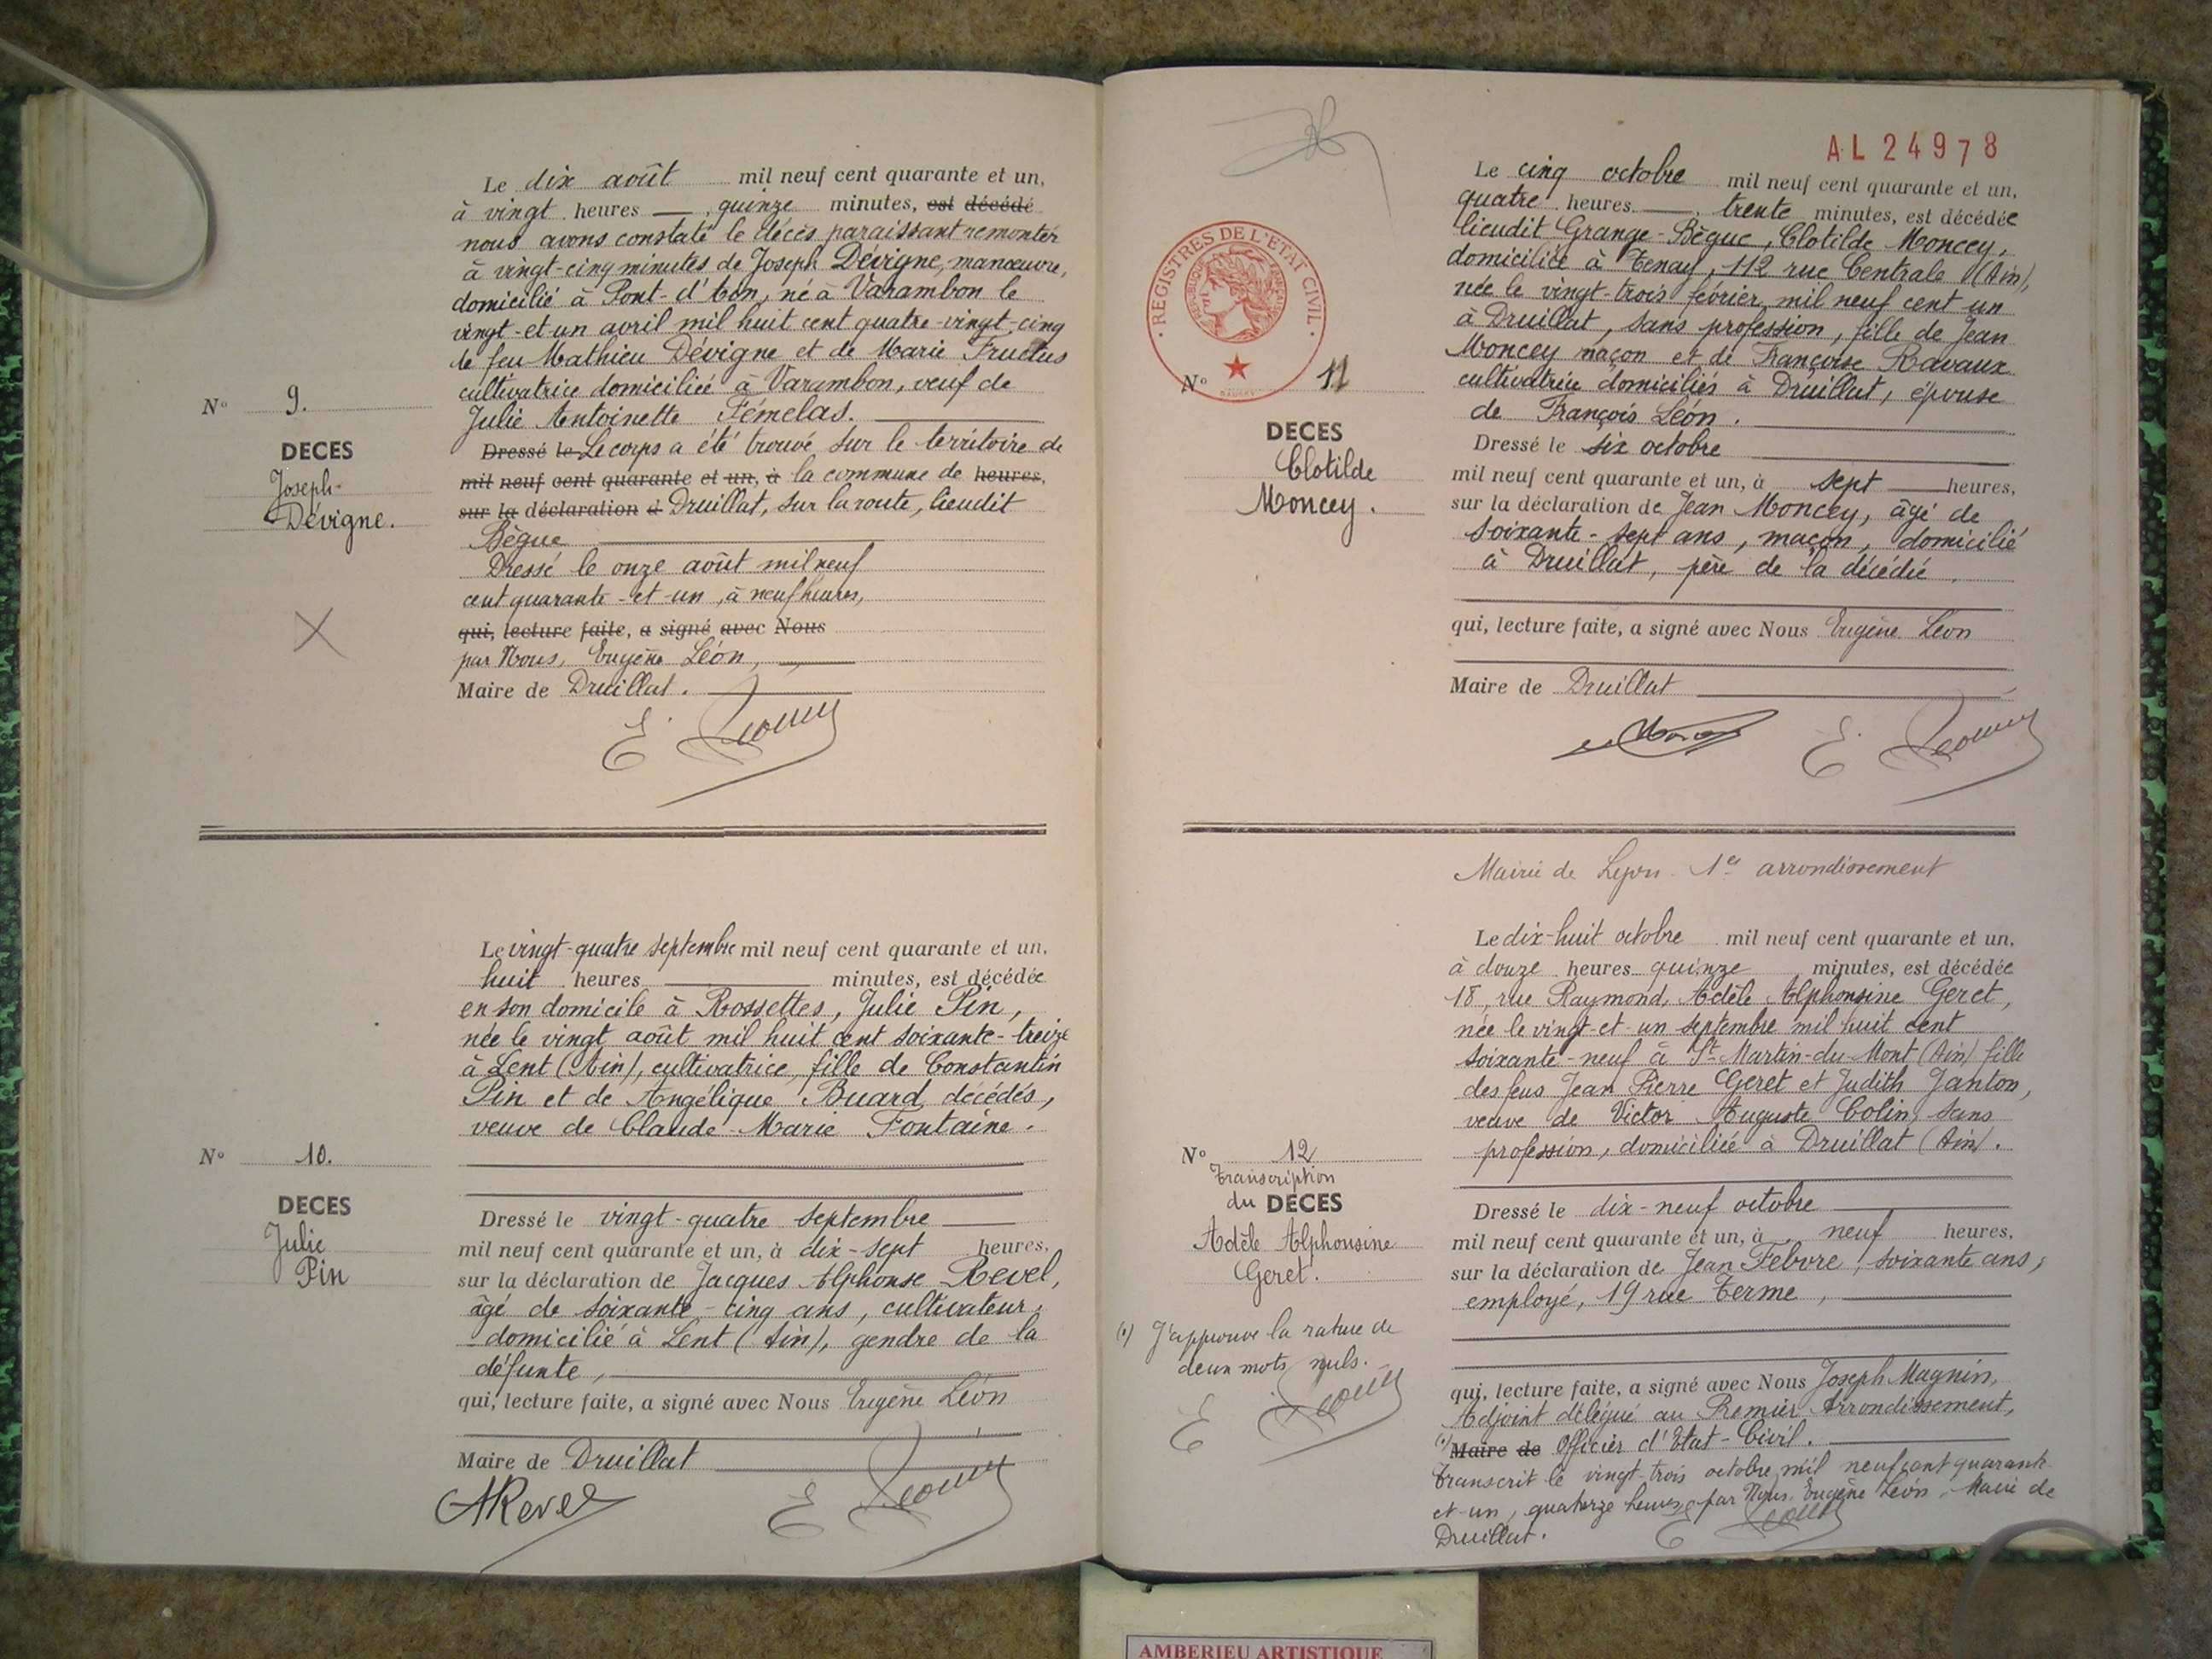 Le dix août mil neuf cent quarante et un,
à vingt heures — , quinze minutes, est décédé
nous avons constaté le décès paraissant remonter
à vingt-cinq minutes de Joseph Dévigne, manœuvre,
domicilié à Pont-d'Ain, né à Varambon le
vingt-et-un avril mil huit cent quatre-vingt-cinq
de feu Mathieu Dévigne et de Marie Fructus
cultivatrice domiciliée à Varambon, veuf de
Julie Antoinette Fémelas.
N° 9.
DECES
Joseph-
Dévigne.
Dressé le Le corps a été trouvé sur le territoire de
mil neuf cent quarante et un, à la commune de heures,
sur la déclaration d Druillat, sur la route, lieudit
Bègue
Dressé le onze août mil neuf
cent quarante-et-un, à neuf heures,
qui, lecture faite, a signé avec Nous
par Nous, Eugène Léon,
Maire de Druillat.
E. Léon
Le vingt-quatre septembre mil neuf cent quarante et un.
huit heures minutes, est décédée
en son domicile à Rossettes, Julie Pin,
née le vingt août mil huit cent soixante-treize
à Lent (Ain), cultivatrice, fille de Constantin
Pin et de Angélique Buard décédés,
veuve de Claude-Marie Fontaine.
N° 10.
DECES
Julie
Pin
Dressé le vingt-quatre septembre
mil neuf cent quarante et un, à dix-sept heures,
sur la déclaration de Jacques Alphonse Revel,
âgé de soixante-cinq ans, cultivateur,
domicilié à Lent (Ain), gendre de la
défunte,
qui, lecture faite, a signé avec Nous Eugène Léon
Maire de Druillat
ARevel E Léon
AL 24978
REGISTRES DE L'ETAT CIVIL
Le cinq octobre mil neuf cent quarante et un,
quatre heures — , trente minutes, est décédée
lieudit Grange-Bègue, Clotilde Moncey,
domiciliée à Tenay, 112 rue Centrale (Ain),
née le vingt-trois février mil neuf cent un
à Druillat, sans profession, fille de Jean
Moncey maçon et de Françoise Ravaux
cultivatrice domiciliés à Druillat, épouse
de François Léon.
N° 11
DECES
Clotilde
Moncey.
Dressé le six octobre
mil neuf cent quarante et un, à sept heures,
sur la déclaration de Jean Moncey, âgé de
soixante-sept ans, maçon, domicilié
à Druillat, père de la décédée,
qui, lecture faite, a signé avec Nous Eugène Léon
Maire de Druillat
E. Léon
Mairie de Lyon 1er arrondissement
Le dix-huit octobre mil neuf cent quarante et un,
à douze heures quinze minutes, est décédée
18, rue Raymond, Adèle Alphonsine Geret,
née le vingt-et-un septembre mil huit cent
soixante-neuf à St-Martin-du-Mont (Ain) fille
des feus Jean Pierre Geret et Judith Janton,
veuve de Victor Auguste Colin, sans
profession, domiciliée à Druillat (Ain).
N° 12
Transcription
du DECES
Adèle Alphonsine
Geret.
Dressé le dix-neuf octobre
mil neuf cent quarante et un, à neuf heures,
sur la déclaration de Jean Febvre, soixante ans,
employé, 19 rue Terme,
(1) J'approuve la rature de
deux mots nuls.
E Léon
qui, lecture faite, a signé avec Nous Joseph Magnin,
Adjoint délégué au Premier Arrondissement,
(1) Maire de Officier d'Etat-Civil.
Transcrit le vingt-trois octobre mil neuf cent quarante
et-un, quatorze heures, par Nous, Eugène Léon, Maire de
Druillat. E Léon
AMBERIEU ARTISTIQUE